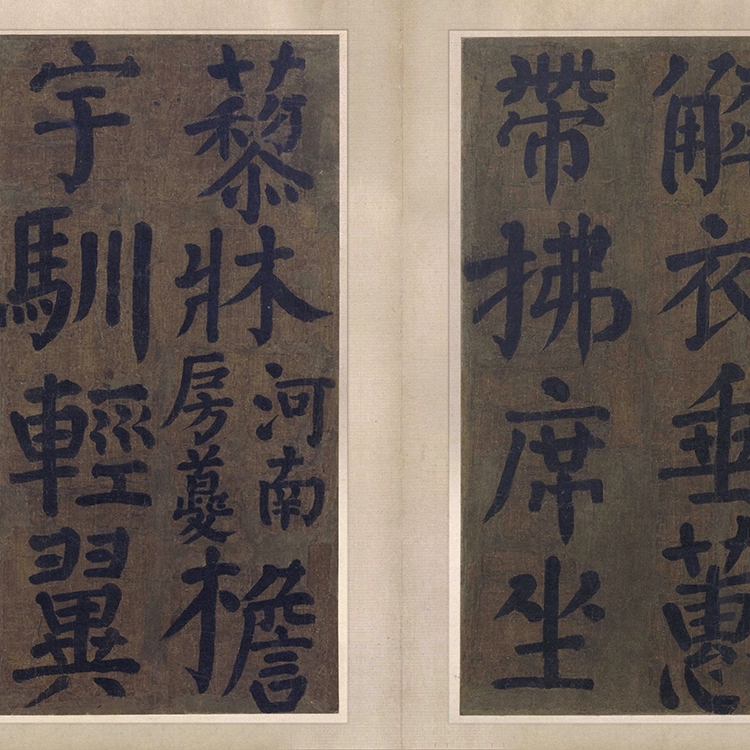 解衣垂蕙
帶拂席坐
藜牀河南房夔檐
宇馴輕翼